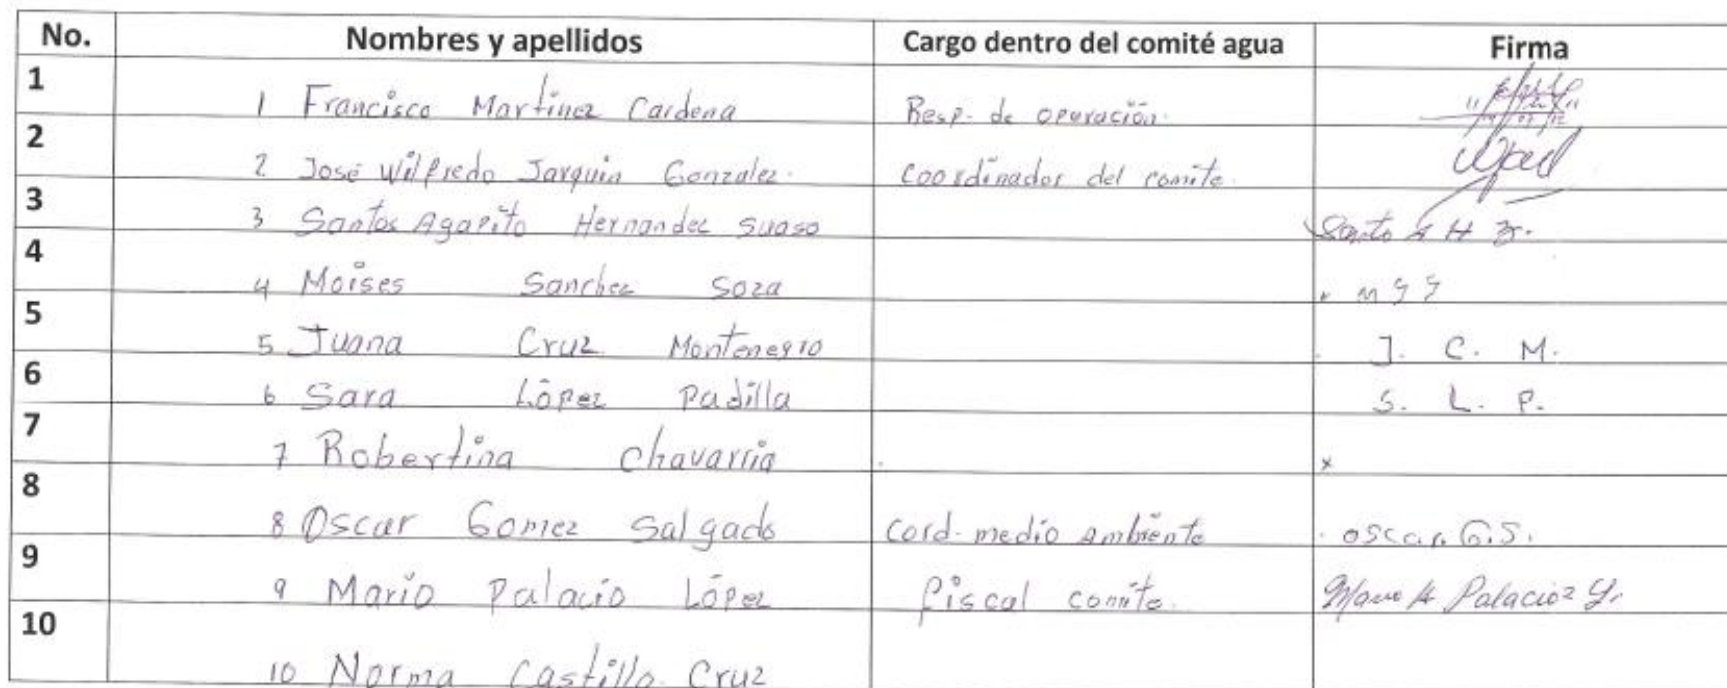 No. Nombres y apellidos Cargo dentro del comité agua Firma
1 1 Francisco Martinez Cardena Resp. de operación.
2 2 José Wilfredo Jarquin Gonzalez. Coordinador del comite.
3 3 Santos Agapito Hernandez Suaso Santo A H Z.
4 4 Moises Sanchez Soza M S S
5 5 Juana Cruz Montenegro J. C. M.
6 6 Sara López Padilla S. L. P.
7 7 Robertina Chavarria x
8 8 Oscar Gomez Salgado Cord. medio Ambiente oscar. G.S.
9 9 Mario Palacio López fiscal comite. Mario A Palacioz
10 10 Norma Castillo Cruz